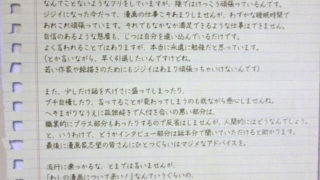 なんてことないようなフリをしていますが、陰ではけっこう頑張っているんです。
ジジイになった今だって、漫画の仕事こそありませんが、わずかな睡眠時間で
あれこれ頑張っています。それでもなかなか満足できるような仕事はできません。
自信のあるような態度も、じつは自分を追い込んでいるだけです。
よく言われることではありますが、本当に永遠に勉強だと思っています。
(とか言いながら、早く引退したいんですけどね。
若い作家や絵描きのためにもジジイはあまり頑張っちゃいけないんです)
また、少しだけ話を大げさに盛ってしまったり、
プチ自慢したり、言ってることが変わってしまうのも我ながら感心しませんね。
へそまがりなうえに孤独好きで人付き合いの悪い部分は、
職業的にプラス部分もあったりするので反省はしませんが、人間的にはどうなんでしょう。
と、いうわけで、どうかインタビュー部分は話半分で聞いていただけると助かります。
最後に漫画家志望の皆さんにひとつくらいはマジメなアドバイスを。
流行に乗っかるな、とまでは言いませんが、
「わしの漫画についてこい!」なんていうくらいの、